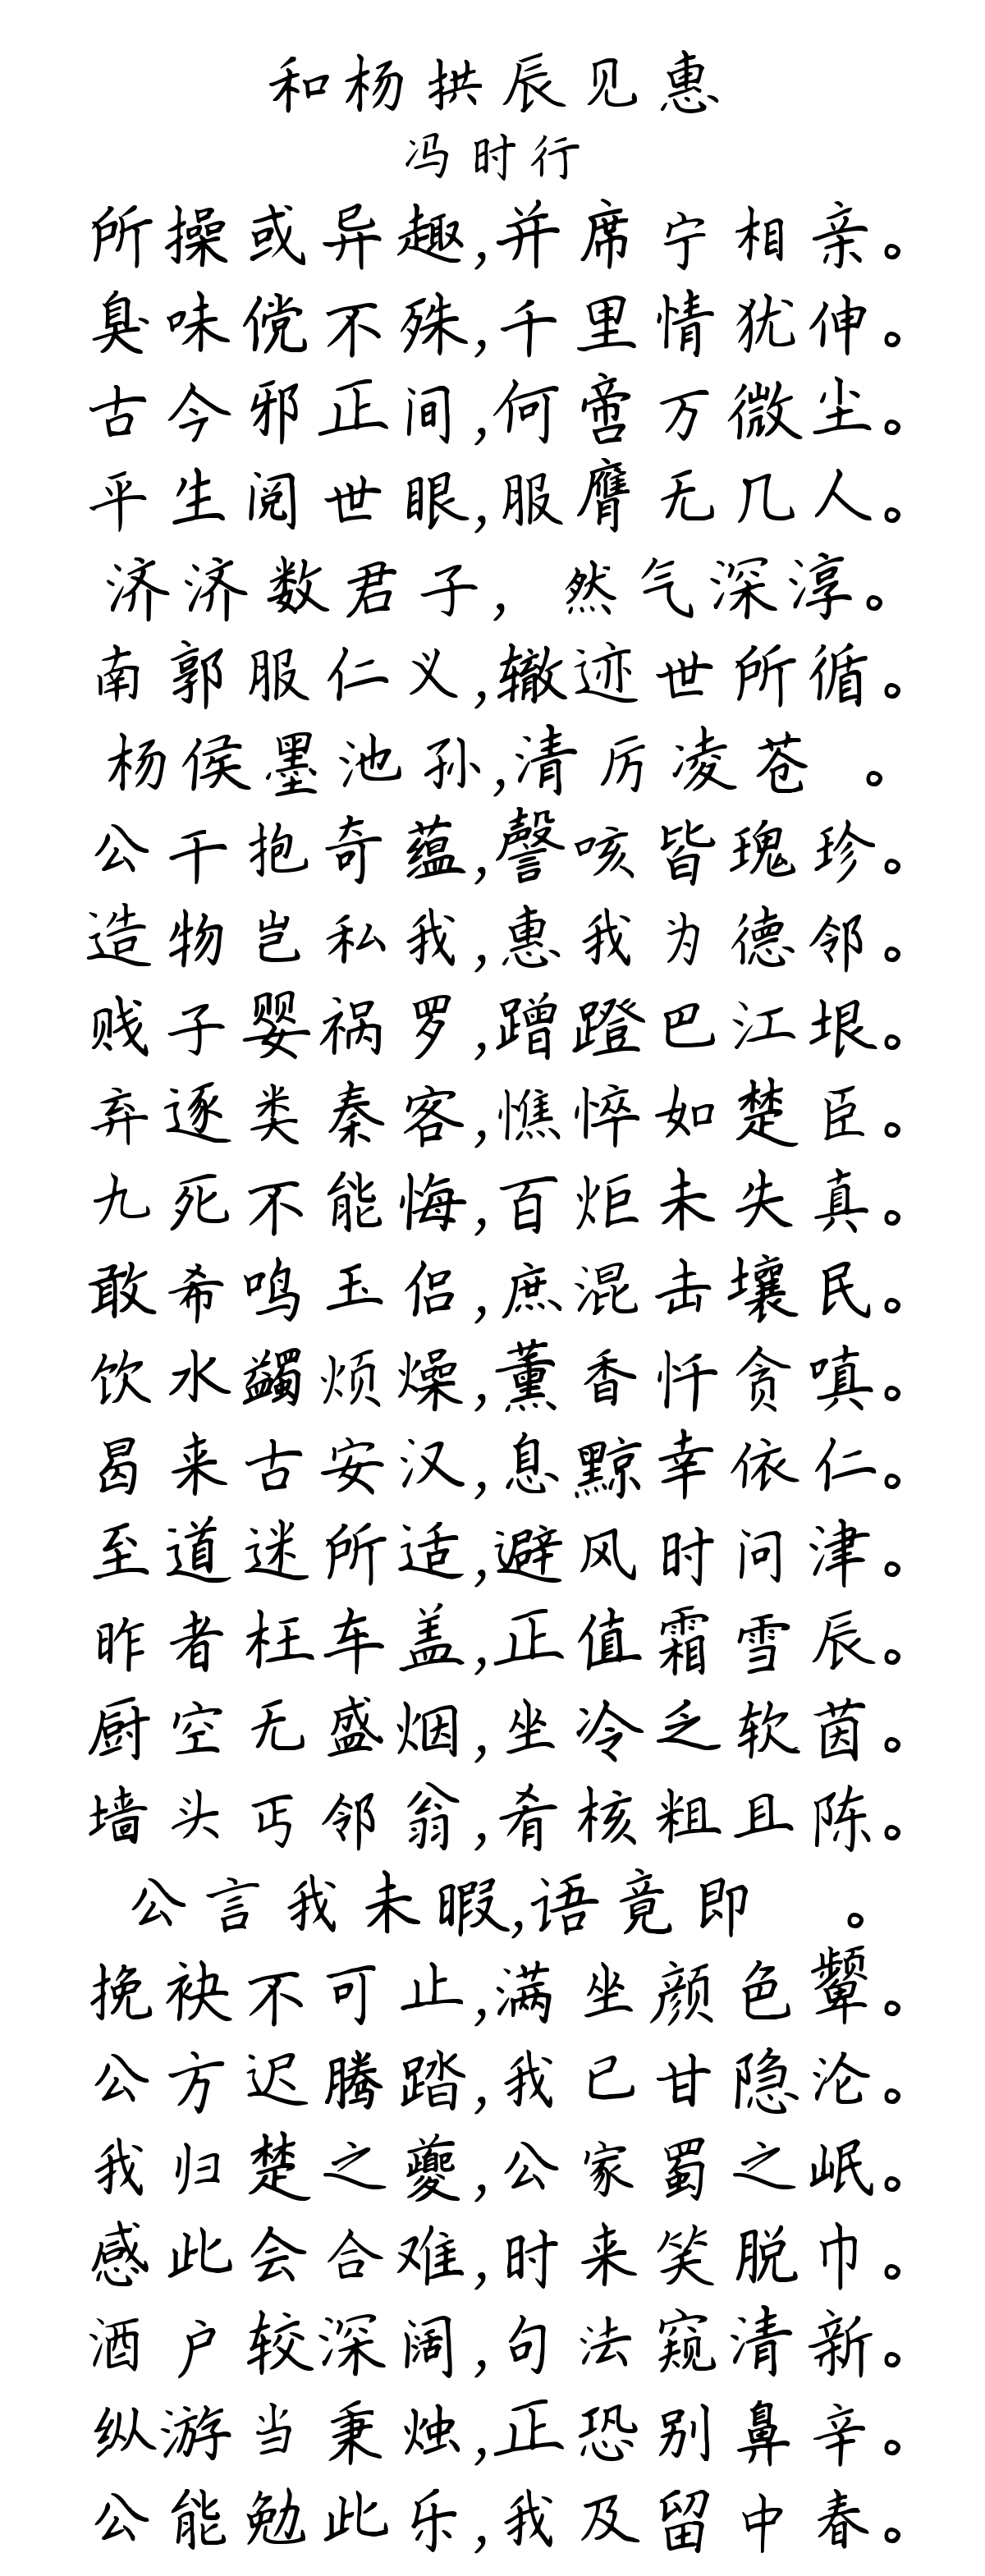 和杨拱辰见惠
冯时行
所操或异趣,并席宁相亲。
臭味傥不殊,千里情犹伸。
古今邪正间,何啻万微尘。
平生阅世眼,服膺无几人。
济济数君子, 然气深淳。
南郭服仁义,辙迹世所循。
杨侯墨池孙,清厉凌苍 。
公干抱奇蕴,謦咳皆瑰珍。
造物岂私我,惠我为德邻。
贱子婴祸罗,蹭蹬巴江垠。
弃逐类秦客,憔悴如楚臣。
九死不能悔,百炬未失真。
敢希鸣玉侣,庶混击壤民。
饮水蠲烦燥,薰香忏贪嗔。
曷来古安汉,息黥幸依仁。
至道迷所适,避风时问津。
昨者枉车盖,正值霜雪辰。
厨空无盛烟,坐冷乏软茵。
墙头丐邻翁,肴核粗且陈。
公言我未暇,语竟即 。
挽袂不可止,满坐颜色颦。
公方迟腾踏,我已甘隐沦。
我归楚之夔,公家蜀之岷。
感此会合难,时来笑脱巾。
酒户较深阔,句法窥清新。
纵游当秉烛,正恐别鼻辛。
公能勉此乐,我及留中春。